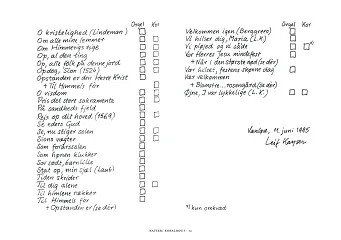 Orgel Kor
O kristelighed (Lindeman)
Om alle mine lemmer
Om Himmerigs rige
Op, al den ting
Op, alle folk på denne jord
Opdag, Sion (1524)
Opstanden er den Herre Krist
+ Til Himmels fór
O visdom
Pris det store sakramente
På sandheds fjeld
Rejs op dit hoved (1569)
Se eders Gud
Se, nu stiger solen
Sions vægter
Som forårssolen
Som hønen klukker
Sov sødt, barnlille
Stat op, min sjæl (Laub)
Tiden skrider
Til dig alene
Til himlene rækker
Til Himmels fór
+ Opstanden er (se dér)
Orgel Kor
Velkommen igen (Berggreen)
Vi hilser dig, Maria (L.K.)
Vi pløjed og vi såede *)
Vor Herres Jesu mindefest
+ Når i den største nød (se dér)
Vær hilset, festens skønne dag
Vær velkommen
+ Blomstre... rosengård (se dér)
Øjne, I var lykkelige (L.K.)
Vanløse, 11. juni 1985
Leif Kayser
*) kun omkvæd